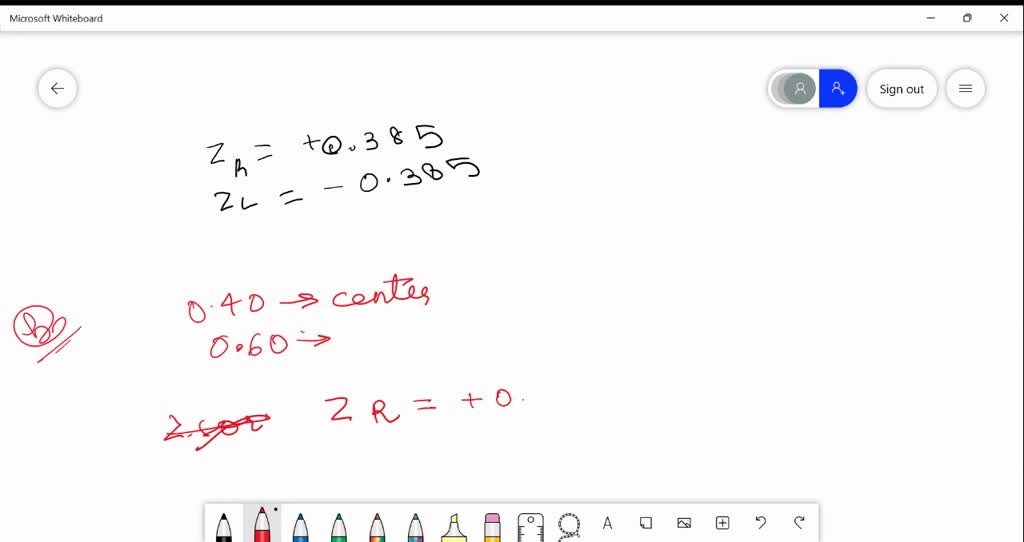 Microsoft Whiteboard
Sign out
Z_R = +0.385
Z_L = - 0.385
0.40 → center
0.60 →
Z R = + 0.
A